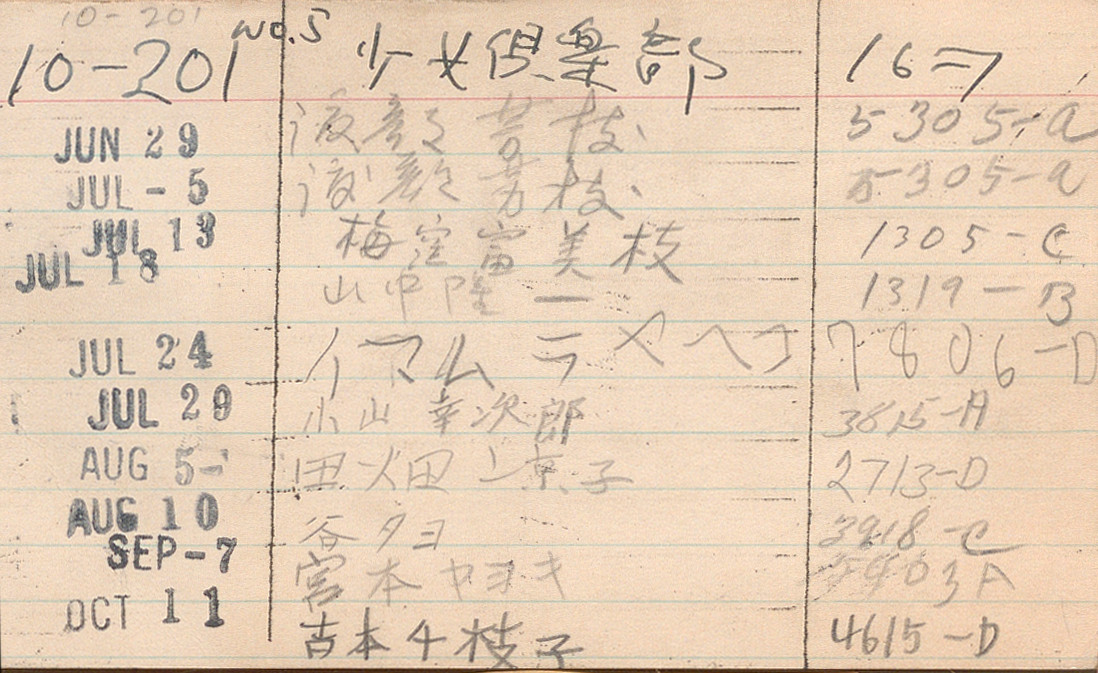 10-201
10-201 No.5 少女倶楽部 16
JUN 29 枝 5305-a
JUL-5 枝 5305-a
JUL 13 梅窪富美枝 1305-C
JUL 18 山中隆一 1319-B
JUL 24 イマムラ 7806-D
JUL 29 小山幸次郎 3815-A
AUG 5- 田畑 京子 2713-D
AUG 10 谷タヨ 3918-C
SEP-7 宮本ヤヨキ 5403A
OCT 11 吉本千枝子 4615-D